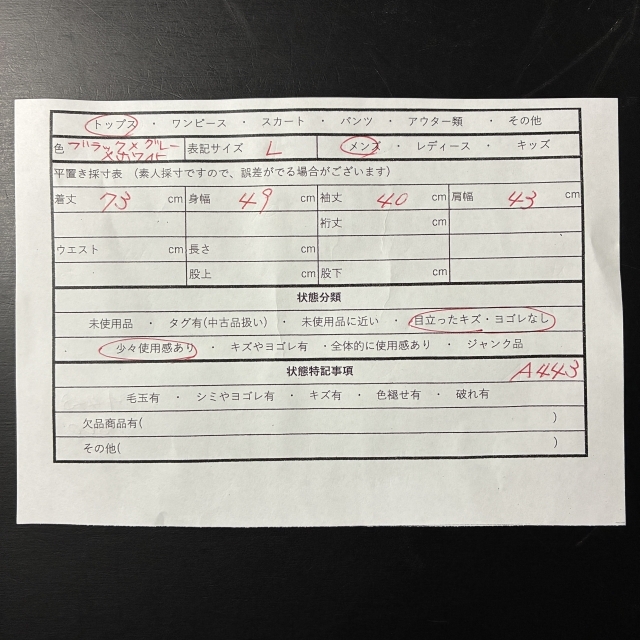 トップス ・ ワンピース ・ スカート ・ パンツ ・ アウター類 ・ その他
色 ブラック×グレー×ホワイト 表記サイズ L メンズ ・ レディース ・ キッズ
平置き採寸表 （素人採寸ですので、誤差がでる場合がございます）
着丈 73 cm 身幅 49 cm 袖丈 40 cm 肩幅 43 cm
裄丈 cm
ウエスト cm 長さ cm
股上 cm 股下 cm
状態分類
未使用品 ・ タグ有(中古品扱い) ・ 未使用品に近い ・ 目立ったキズ・ヨゴレなし
少々使用感あり ・ キズやヨゴレ有 ・全体的に使用感あり ・ ジャンク品
状態特記事項 A443
毛玉有 ・ シミやヨゴレ有 ・ キズ有 ・ 色褪せ有 ・ 破れ有
欠品商品有( )
その他( )